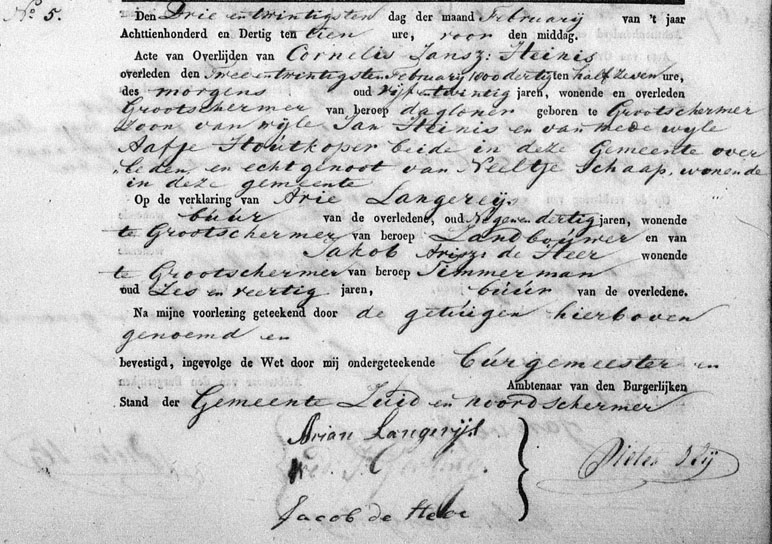 No. 5.
Den Drie en twintigsten dag der maand February van 't jaar
Achttienhonderd en Dertig ten tien ure, voor den middag.
Acte van Overlijden van Cornelis Jansz: Heinis
overleden den Twee en twintigsten February 1800 dertig ten half zeven ure,
des morgens oud vijf en twintig jaren, wonende en overleden
Grootschermer van beroep dagloner geboren te Grootschermer
Zoon van wijle Jan Heinis en van mede wyle
Aafje Houtkoper beide in deze Gemeente over
leden, en echtgenoot van Neeltje Schaap, wonende
in deze gemeente
Op de verklaring van Arie Langereijs
buur van de overledene, oud Negen en dertig jaren, wonende
te Grootschermer van beroep Landbouwer en van
Jakob Arisz: de Heer wonende
te Grootschermer van beroep Timmerman
oud Zes en veertig jaren, buur van de overledene.
Na mijne voorlezing geteekend door de getuigen hierboven
genoemd en
bevestigd, ingevolge de Wet door mij ondergeteekende burgemeester en
Ambtenaar van den Burgerlijken
Stand der Gemeente Zuid en noordschermer
Arian Langerijs
Pieter
Jacob de Heer